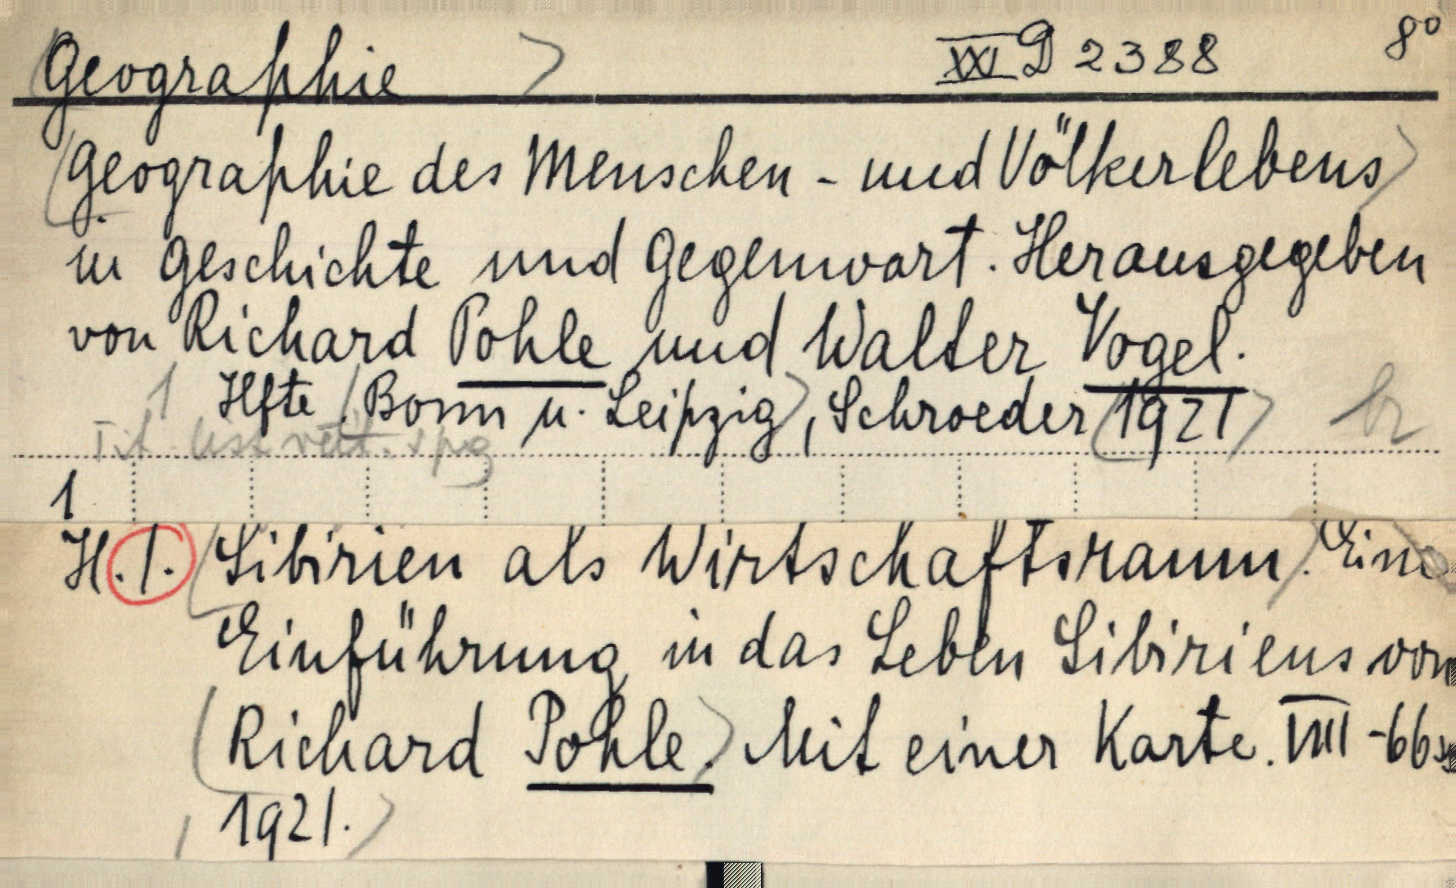 Geographie XXI D 2388 8°
Geographie des Menschen- und Völkerlebens
in Geschichte und Gegenwart. Herausgegeben
von Richard Pohle und Walter Vogel.
1 Hfte. Bonn u. Leipzig, Schroeder 1921
Tit.
1
H.1. Sibirien als Wirtschaftsraum. Eine
Einführung in das Leben Sibiriens von
Richard Pohle. Mit einer Karte. VIII-66
1921.